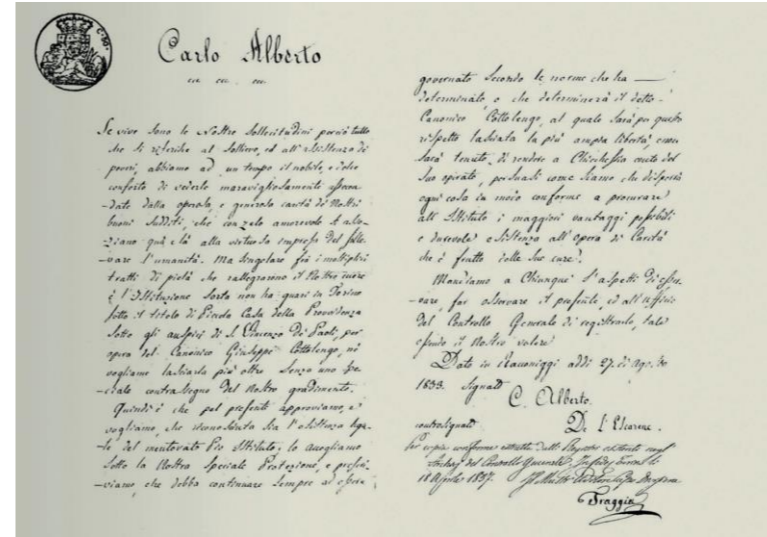 Carlo Alberto
ecc. ecc. ecc.
Se vive sono le Nostre Sollecitudini perciò tutto
che si riferisce al Sollievo, ed all'assistenza dei
poveri, abbiamo ad un tempo il nobile, e dolce
conforto di vederle maravigliosamente secon-
-date dalla operosa e generosa carità dei Nostri
buoni Sudditi, che con zelo amorevole si asso-
-ziano quà e là alla virtuosa impresa del solle-
vare l'umanità. Ma singolare fra i moltiplici
tratti di pietà che rallegrarono il Nostro cuore
è l'Istituzione Sorta non ha guari in Torino
sotto il titolo di Piccola Casa della Provvidenza
sotto gli auspici di S. Vincenzo De' Paoli, per
opera del Canonico Giuseppe Cottolengo, nè
vogliamo lasciarla più oltre Senza uno spe-
ciale contrassegno del Nostro gradimento.
Quindi è che pel presente approviamo, e
vogliamo, che riconosciuta sia l'esistenza lega-
le del mentovato Pio Istituto, lo accogliamo
sotto la Nostra Speciale Protezione, e prescri-
-viamo, che debba continuare Sempre ad essere
governato Secondo le norme che ha
determinato, o che determinerà il detto
Canonico Cottolengo, al quale Sarà per questo
rispetto lasciata la più ampia libertà, e non
Sarà tenuto, di rendere a Chichessia conto del
Suo operato, persuasi come siamo che disporrà
ogni cosa in modo conforme a procurare
all'Istituto i maggiori vantaggi possibili
e durevole esistenza all'opera di Carità
che è frutto delle sue cure.
Mandiamo a Chiunque s'aspetti di osser-
vare, far osservare il presente, ed all'uffizio
del Controllo Generale di registrarlo, tale
essendo il Nostro volere.
Dato in Racconiggi addì 27. di Agosto
1833. Signato
C. Alberto.
contrasignato De l'Escarene.
Per copia conforme estratta dalli Registri esistenti negli
Archivj del Controllo Generale
18 Aprile 1837.
Fraggia